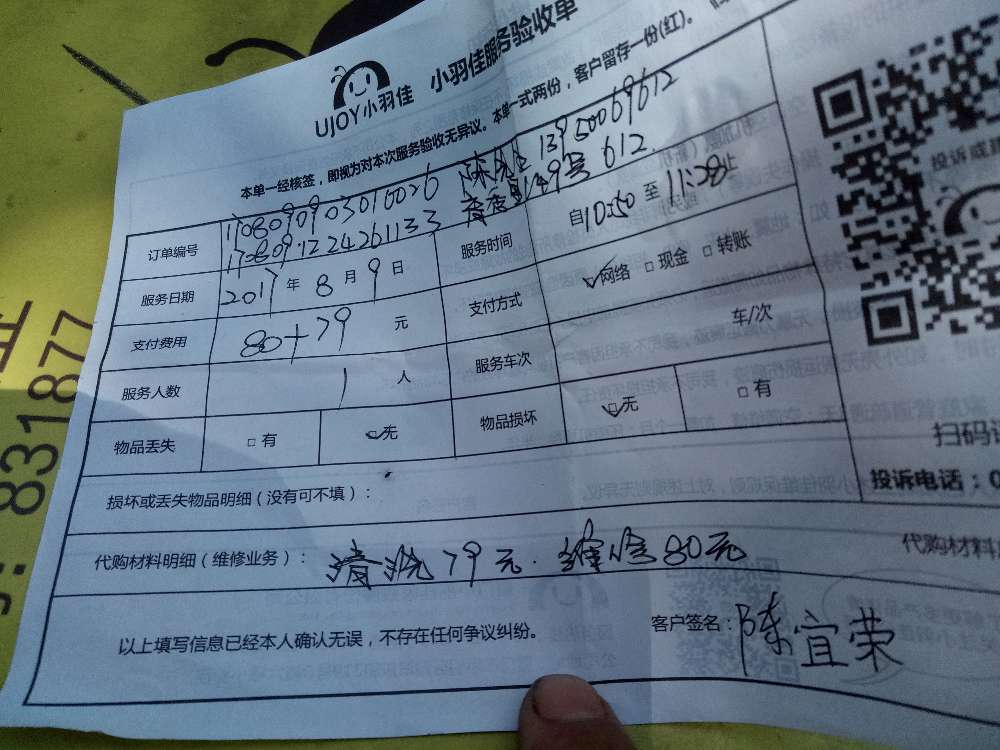 UJOY小羽佳 小羽佳服务验收单
本单一经核签，即视为对本次服务验收无异议。本单一式两份，客户留存一份(红)。
订单编号 服务时间 自10:50 至 11:28止
612
服务日期 2017 年 8 月 9 日 支付方式 网络 现金 转账
支付费用 80+79 元 服务车次 车/次
服务人数 1 人
物品丢失 有 无 物品损坏 无 有
损坏或丢失物品明细（没有可不填）：
代购材料明细（维修业务）： 清洗79元. 维修80元 代购材料
以上填写信息已经本人确认无误，不存在任何争议纠纷。 客户签名：陈宜荣
投诉或
扫码
投诉电话：0
831877